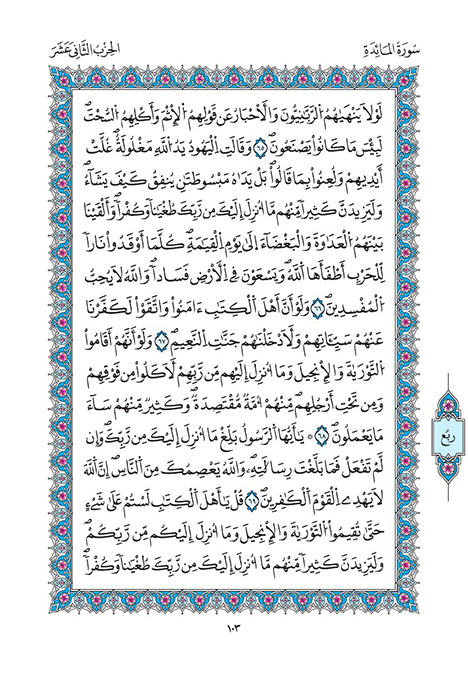 سُورَةُ المَائِدَةِ
الحِزْبُ الثَّانِي عَشَرَ
لَوْلَا يَنْهَيٰهُمُ الرَّبَّٰنِيُّونَ وَالْأَحْبَارُ عَن قَوْلِهِمُ الْإِثْمَ وَأَكْلِهِمُ السُّحْتَ
لَبِيسَ مَا كَانُواْ يَصْنَعُونَ ٦٥ وَقَالَتِ الْيَهُودُ يَدُ اللَّهِ مَغْلُولَةٌ غُلَّتَ
أَيْدِيهِمْ وَلُعِنُواْ بِمَا قَالُواْ بَلْ يَدَاهُ مَبْسُوطَتَٰنِ يُنفِقُ كَيْفَ يَشَآءُ
وَلَيَزِيدَنَّ كَثِيراً مِّنْهُم مَّا أُنزِلَ إِلَيْكَ مِن رَّبِّكَ طُغْيَٰناً وَكُفْراً وَأَلْقَيْنَا
بَيْنَهُمُ الْعَدَٰوَةَ وَالْبَغْضَآءَ اِلَىٰ يَوْمِ الْقِيَٰمَةِ كُلَّمَا أَوْقَدُواْ نَاراً
لِّلْحَرْبِ أَطْفَأَهَا اللَّهُ وَيَسْعَوْنَ فِي الْأَرْضِ فَسَاداً وَاللَّهُ لَا يُحِبُّ
الْمُفْسِدِينَ ٦٦ وَلَوَ اَنَّ أَهْلَ الْكِتَٰبِ ءَامَنُواْ وَاتَّقَوْاْ لَكَفَّرْنَا
عَنْهُمْ سَيِّـَٔاتِهِمْ وَلَأَدْخَلْنَٰهُمْ جَنَّٰتِ النَّعِيمِ ٦٧ وَلَوَ اَنَّهُمُ أَقَامُواْ
التَّوْرَيٰةَ وَالْإِنجِيلَ وَمَا أُنزِلَ إِلَيْهِم مِّن رَّبِّهِمْ لَأَكَلُواْ مِن فَوْقِهِمْ
وَمِن تَحْتِ أَرْجُلِهِم مِّنْهُمُ أُمَّةٌ مُّقْتَصِدَةٌ وَكَثِيرٌ مِّنْهُمْ سَآءَ
مَا يَعْمَلُونَ ٦٨ ۞ يَٰأَيُّهَا الرَّسُولُ بَلِّغْ مَا أُنزِلَ إِلَيْكَ مِن رَّبِّكَ وَإِن
لَّمْ تَفْعَلْ فَمَا بَلَّغْتَ رِسَالَٰتِهِ وَاللَّهُ يَعْصِمُكَ مِنَ النَّاسِ إِنَّ اللَّهَ
لَا يَهْدِي الْقَوْمَ الْكَٰفِرِينَ ٦٩ قُلْ يَٰأَهْلَ الْكِتَٰبِ لَسْتُمْ عَلَىٰ شَيْءٍ
حَتَّىٰ تُقِيمُواْ التَّوْرَيٰةَ وَالْإِنجِيلَ وَمَا أُنزِلَ إِلَيْكُم مِّن رَّبِّكُمْ
وَلَيَزِيدَنَّ كَثِيراً مِّنْهُم مَّا أُنزِلَ إِلَيْكَ مِن رَّبِّكَ طُغْيَٰناً وَكُفْراً
ربع
١٠٣